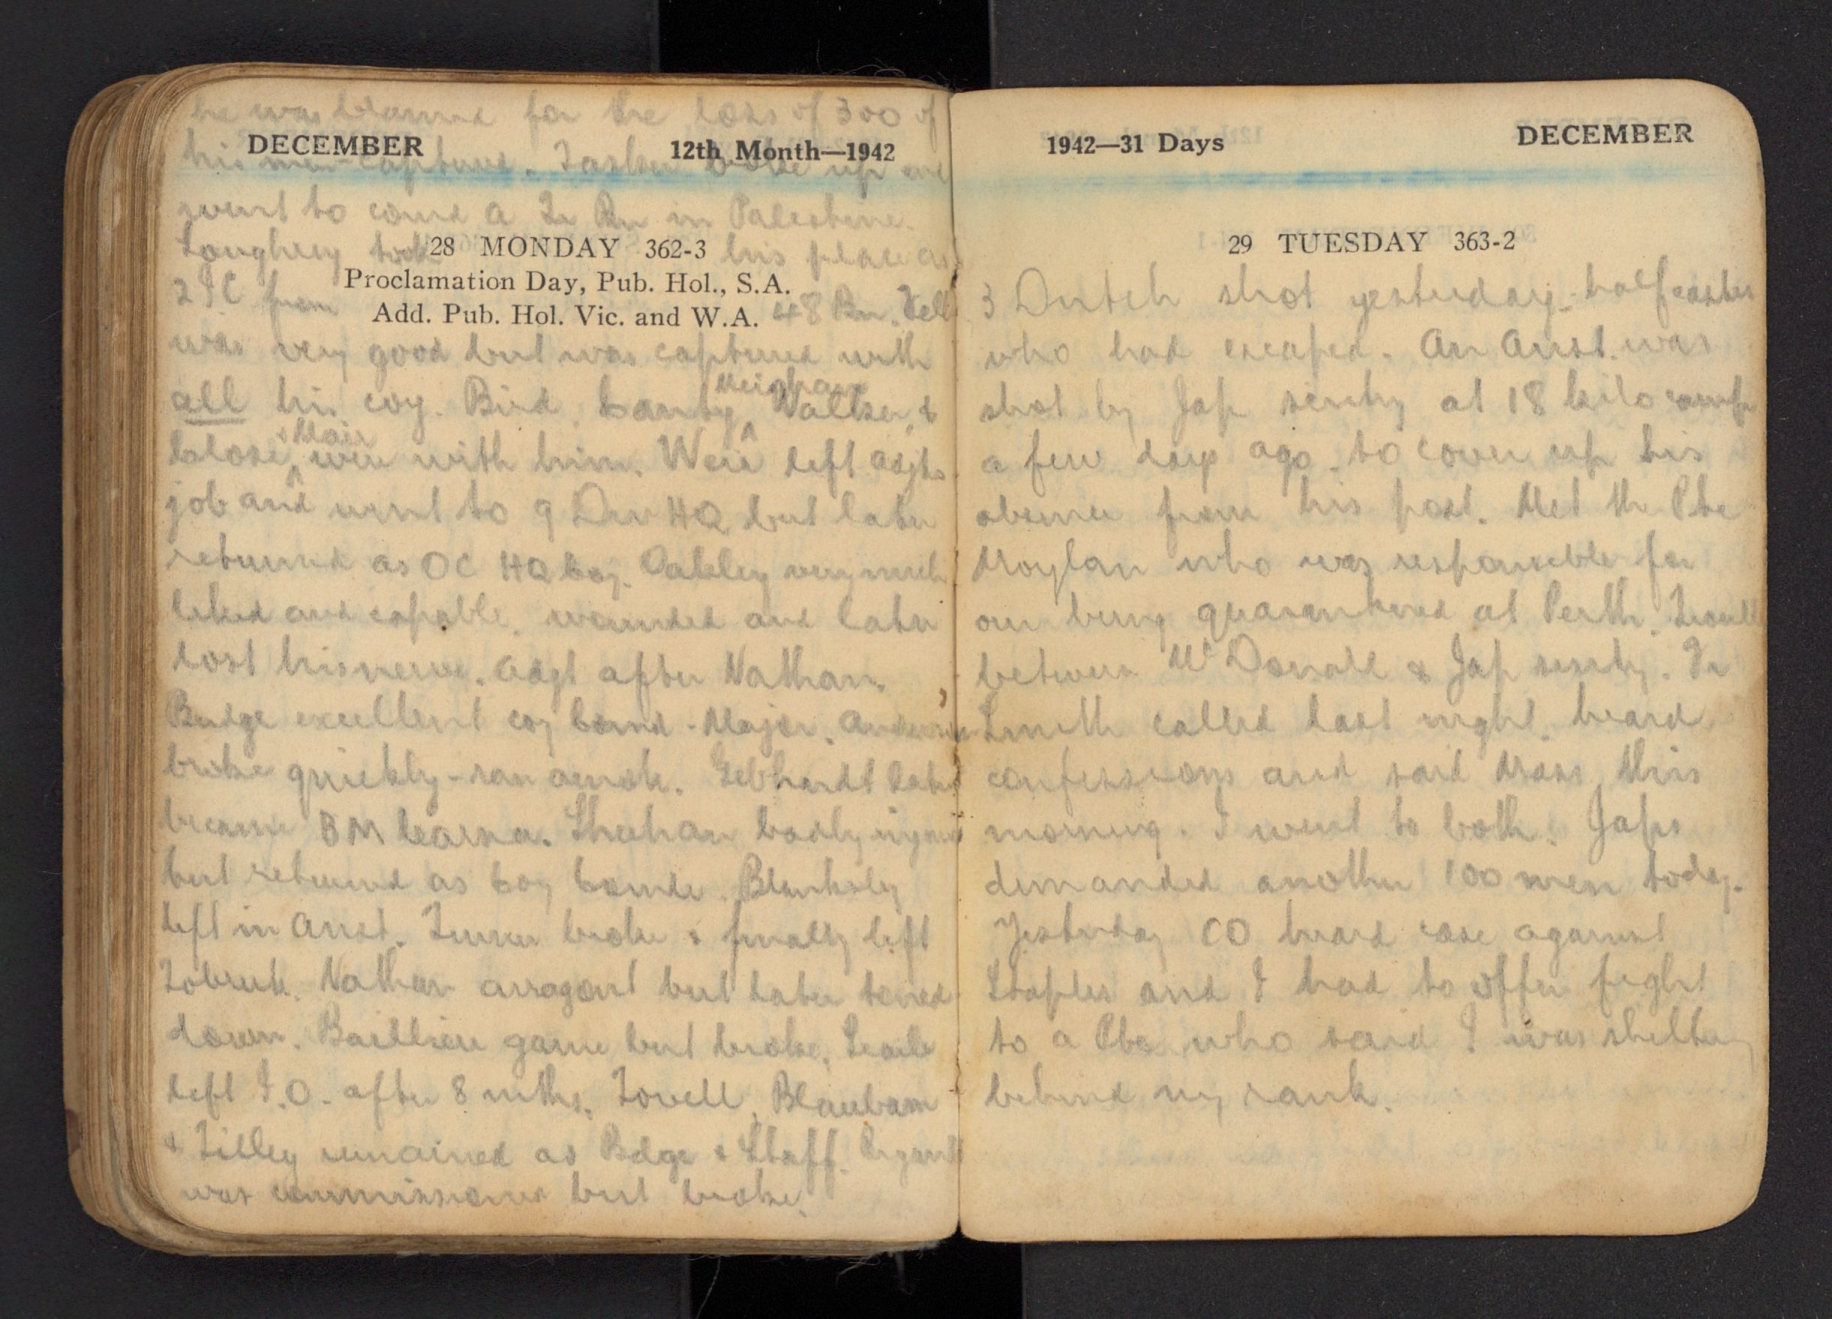 he was blamed for the loss of 300 of
DECEMBER 12th Month—1942
his men captured. Tasker broke up and
went to comd a Tr Bn in Palestine.
Loughrey took his place as
28 MONDAY 362-3
Proclamation Day, Pub. Hol., S.A.
2 IC from 48 Bn.
Add. Pub. Hol. Vic. and W.A.
was very good but was captured with
all his coy. Bird, Canty, Meighan Walker, &
& Mair were with him. Weir left adjts
job and went to 9 Div HQ but later
returned as OC HQ Coy. Oakley very much
liked and capable, wounded and later
lost his nerve. Adjt after Nathan.
Budge excellent coy comd - Major.
broke quickly - ran amok. Gebhardt later
became BM Shehan badly injured
but returned as Coy Comdr.
left in Aust. broke & finally left
Tobruk. Nathan arragont but later toned
down. Baillieu game but broke.
left I.O. after 8 mths. Tovell, Blaubaum
& Tilley remained as Bdge & Staff.
was commissioned but broke.
1942—31 Days DECEMBER
29 TUESDAY 363-2
3 Dutch shot yesterday - half castes
who had escaped. An Aust. was
shot by Jap sentry at 18 kilo camp
a few days ago to cover up his
absence from his post. Met the Pte
Moylan who was responsible for
our being quarantined at Perth. Trouble
between McDonald & Jap sentry. Fr
Smith called last night, heard
confessions and said Mass this
morning. I went to both. Japs
demanded another 100 men today.
Yesterday CO heard case against
Staples and I had to offer fight
to a Pte who said I was sheltering
behind my rank.